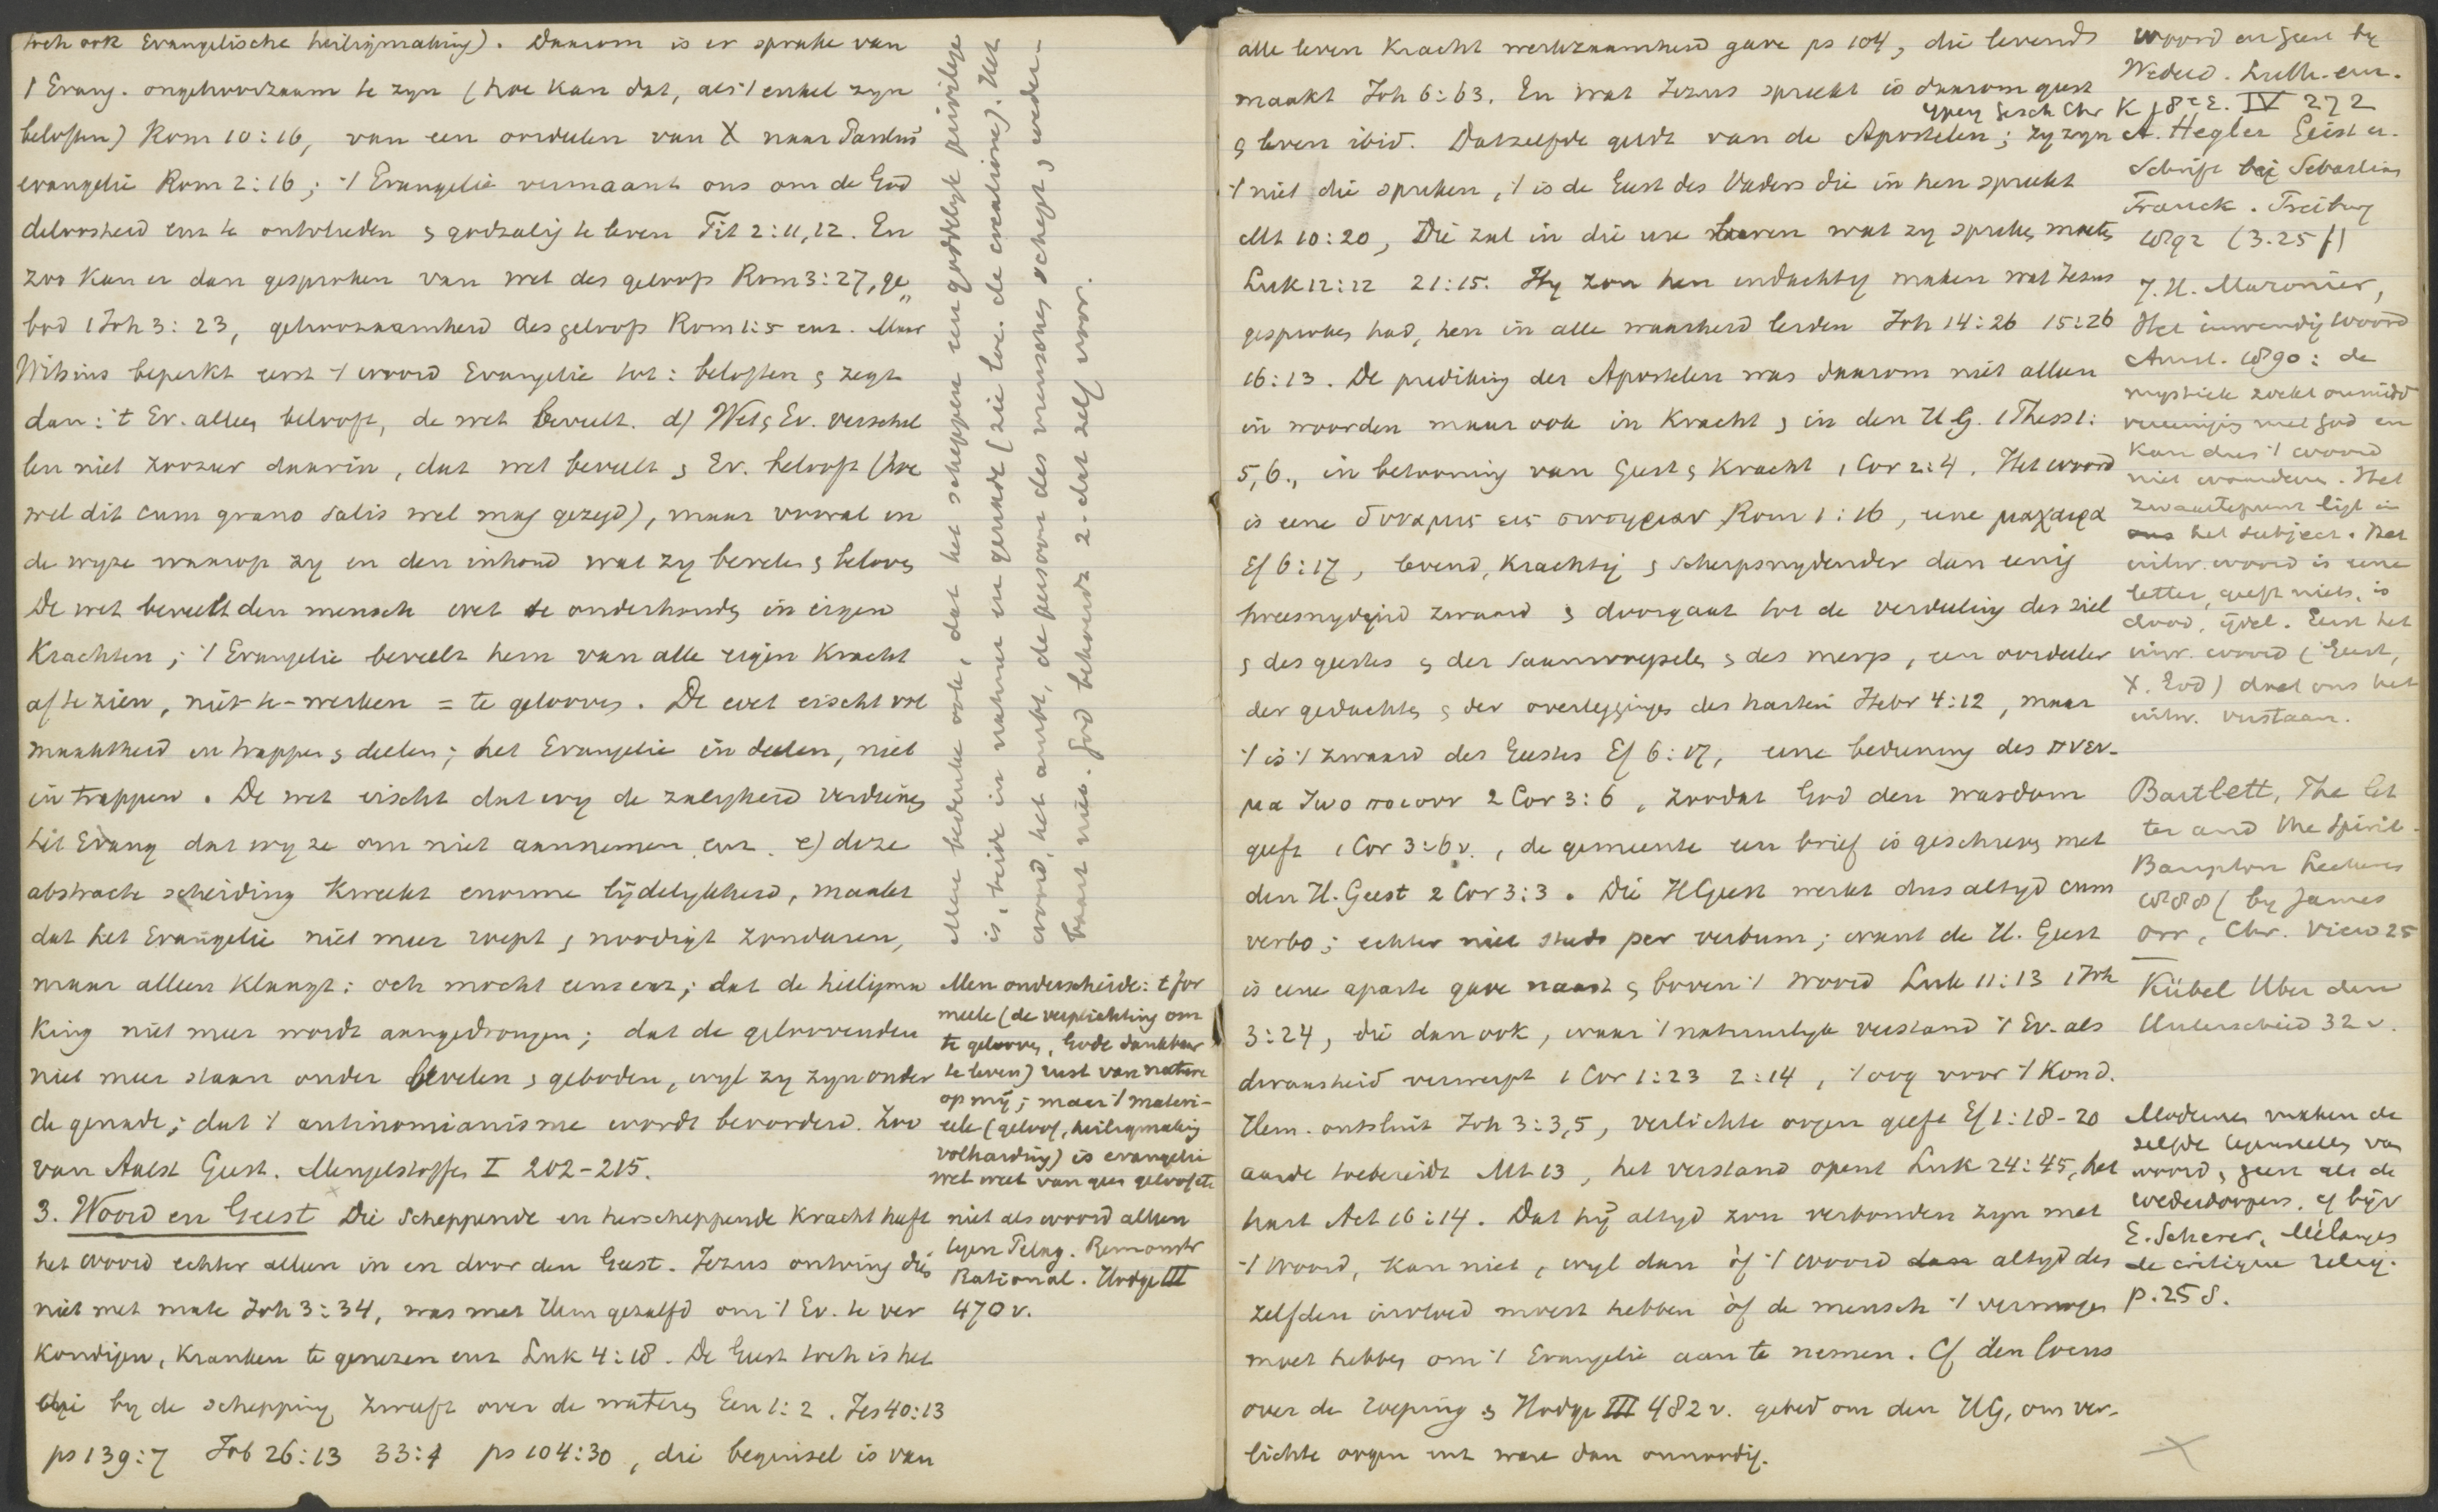 toch ook Evangelische heiligmaking). Daarom is er sprake van
't Evang. ongehoorzaam te zyn (hoe kan dat, als 't enkel zyn
beloften) Rom 10:16, van een oordeelen van X naar Paulus'
evangelie Rom 2:16; 't Evangelie vermaant ons om de God
deloosheid enz te ontvlieden & godzalig te leven Tit 2:11,12. En
zoo kan er dan gesproken van wet des geloofs Rom 3:27, ge„
bod 1 Joh 3:23, gehoorzaamheid des geloofs Rom 1:5 enz. Maar
Witsius beperkt eerst 't woord Evangelie tot: beloften & zegt
dan: 't Ev. alleen belooft, de wet beveelt. d) Wet & Ev. verschil
len niet zoozeer daarin, dat wet beveelt & Ev. belooft (hoe
wel dit cum grano salis wel mag gezegd), maar vooral in
de wyze waarop zy en den inhoud wat zy bevelen & beloven
De wet beveelt den mensch wet te onderhouden in eigen
krachten; 't Evangelie beveelt hem van alle eigen kracht
af te zien, niet-te-werken = te gelooven. De wet eischt vol
maaktheid in trappen & deelen; het Evangelie in deelen, niet
in trappen. De wet eischt dat wy de zaligheid verdienen
het Evang dat wy ze om niet aannemen enz. e) deze
abstracte scheiding kweekt enorme lijdelykheid, maakt
dat het Evangelie niet meer roept & noodigt zondaren,
maar alleen klaagt: och mocht eens enz; dat de heiligma
king niet meer wordt aangedrongen; dat de geloovenden
niet meer staan onder bevelen & geboden, wyl zy zyn onder
de genade; dat 't antinomianisme wordt bevorderd. Zoo
van Aalst Geest. Mengelstoffen I 202-215.
3. Woord en Geest Die scheppende en herscheppende kracht heeft
het woord echter alleen in en door den Geest. Jezus ontving dien
niet met mate Joh 3:34, was met Hem gezalfd om 't Ev. te ver
kondigen, kranken te genezen enz Luk 4:18. De Geest toch is het
die by de schepping zweeft over de wateren Gen 1:2. Jes 40:13
ps 139:7 Job 26:13 33:4 ps 104:30, die beginsel is van
Men bedenke ook, dat het scheppen een goddelyk privilege
is, beide in natuur en genade (zie loc. de creatione). Het
woord, het ambt, de persoon des menschen schept, weder-
baart niet. God behoudt z. dat zelf voor.
Men onderscheide: 't for
meele (de verplichting om
te gelooven, Gode dankbaar
te leven) rust van nature
op mij; maar 't materi-
eele (geloof, heiligmaking
volharding) is evangelie
wet weet van geen geloof etc
niet als woord alleen
tegen Pelag. Remonstr
Rational. Hodge III
470 v.
alle leven kracht werkzaamheid gave ps 104, die levend
maakt Joh 6:63. En wat Jezus spreekt is daarom geest
& leven ibid. Datzelfde geldt van de Apostelen; zy zyn
't niet die spreken, 't is de Geest des Vaders die in hen spreekt
Mt 10:20, Die zal in die ure leeren wat zy spreken moeten
Luk 12:12 21:15. Hy zou hen indachtig maken wat Jezus
gesproken had, hen in alle waarheid leiden Joh 14:26 15:26
16:13. De prediking der Apostelen was daarom niet alleen
in woorden maar ook in kracht & in den H G. 1 Thess 1:
5,6., in betooning van Geest & kracht 1 Cor 2:4. Het woord
is eene δυναμις εις σωτηριαν Rom 1:16, eene μαχαιρα
Ef 6:17, levend, krachtig & scherpsnydender dan eenig
tweesnydend zwaard & doorgaat tot de verdeeling der ziel
& des geestes & der saamvoegselen & des mergs, een oordeeler
der gedachten & der overleggingen des harten Hebr 4:12, maar
't is 't zwaard des Geestes Ef 6:17, eene bediening des πνευ-
μα ζωοποιουν 2 Cor 3:6, zoodat God den wasdom
geeft 1 Cor 3:6 v., de gemeente een brief is geschreven met
den H. Geest 2 Cor 3:3. Die H Geest werkt dus altyd cum
verbo; echter niet steeds per verbum; want de H. Geest
is eene aparte gave naast & boven 't woord Luk 11:13 1 Joh
3:24, die dan ook, waar 't natuurlyk verstand 't Ev. als
dwaasheid verwerpt 1 Cor 1:23 2:14, 't oog voor 't Kon d.
Hem. ontsluit Joh 3:3,5, verlichte oogen geeft Ef 1:18-20
aarde toebereidt Mt 13, het verstand opent Luk 24:45, het
hart Act 16:14. Dat hij altyd zou verbonden zyn met
't Woord, kan niet, wyl dan òf 't woord dan altyd des
zelfden invloed moest hebben òf de mensch 't vermogen
moet hebben om 't Evangelie aan te nemen. Cf den locus
over de roeping & Hodge III 482 v. gebed om den HG, om ver-
lichte oogen enz ware dan onnoodig.
woord en geest by
Wederd. Luth. enz.
Ypey Gesch Chr K 18e E. IV 272
A. Hegler Geist u.
Schrift bei Sebastian
Franck. Freiburg
1892 (3.25 f)
J. H. Maronier,
Het inwendig woord
Amst. 1890: de
mystiek zoekt onmidd
vereenigg met God en
kan dus 't woord
niet waardeeren. Het
zwaartepunt ligt in
ons het subject. Het
uitw. woord is eene
letter, geeft niets, is
dood, ijdel. Eerst het
inw. woord (Geest,
X. God) doet ons het
uitw. verstaan.
Bartlett, The let
ter and the Spirit.
Bampton Lectures
1888 (by James
Orr, Chr. View 25
Kübel Uber den
Unterscheid 32 v.
Modernen maken de
zelfde tegenstelling van
woord & geest als de
wederdoopers. cf bijv
E. Scherer, Mélanges
de critique relig.
p. 25 s.